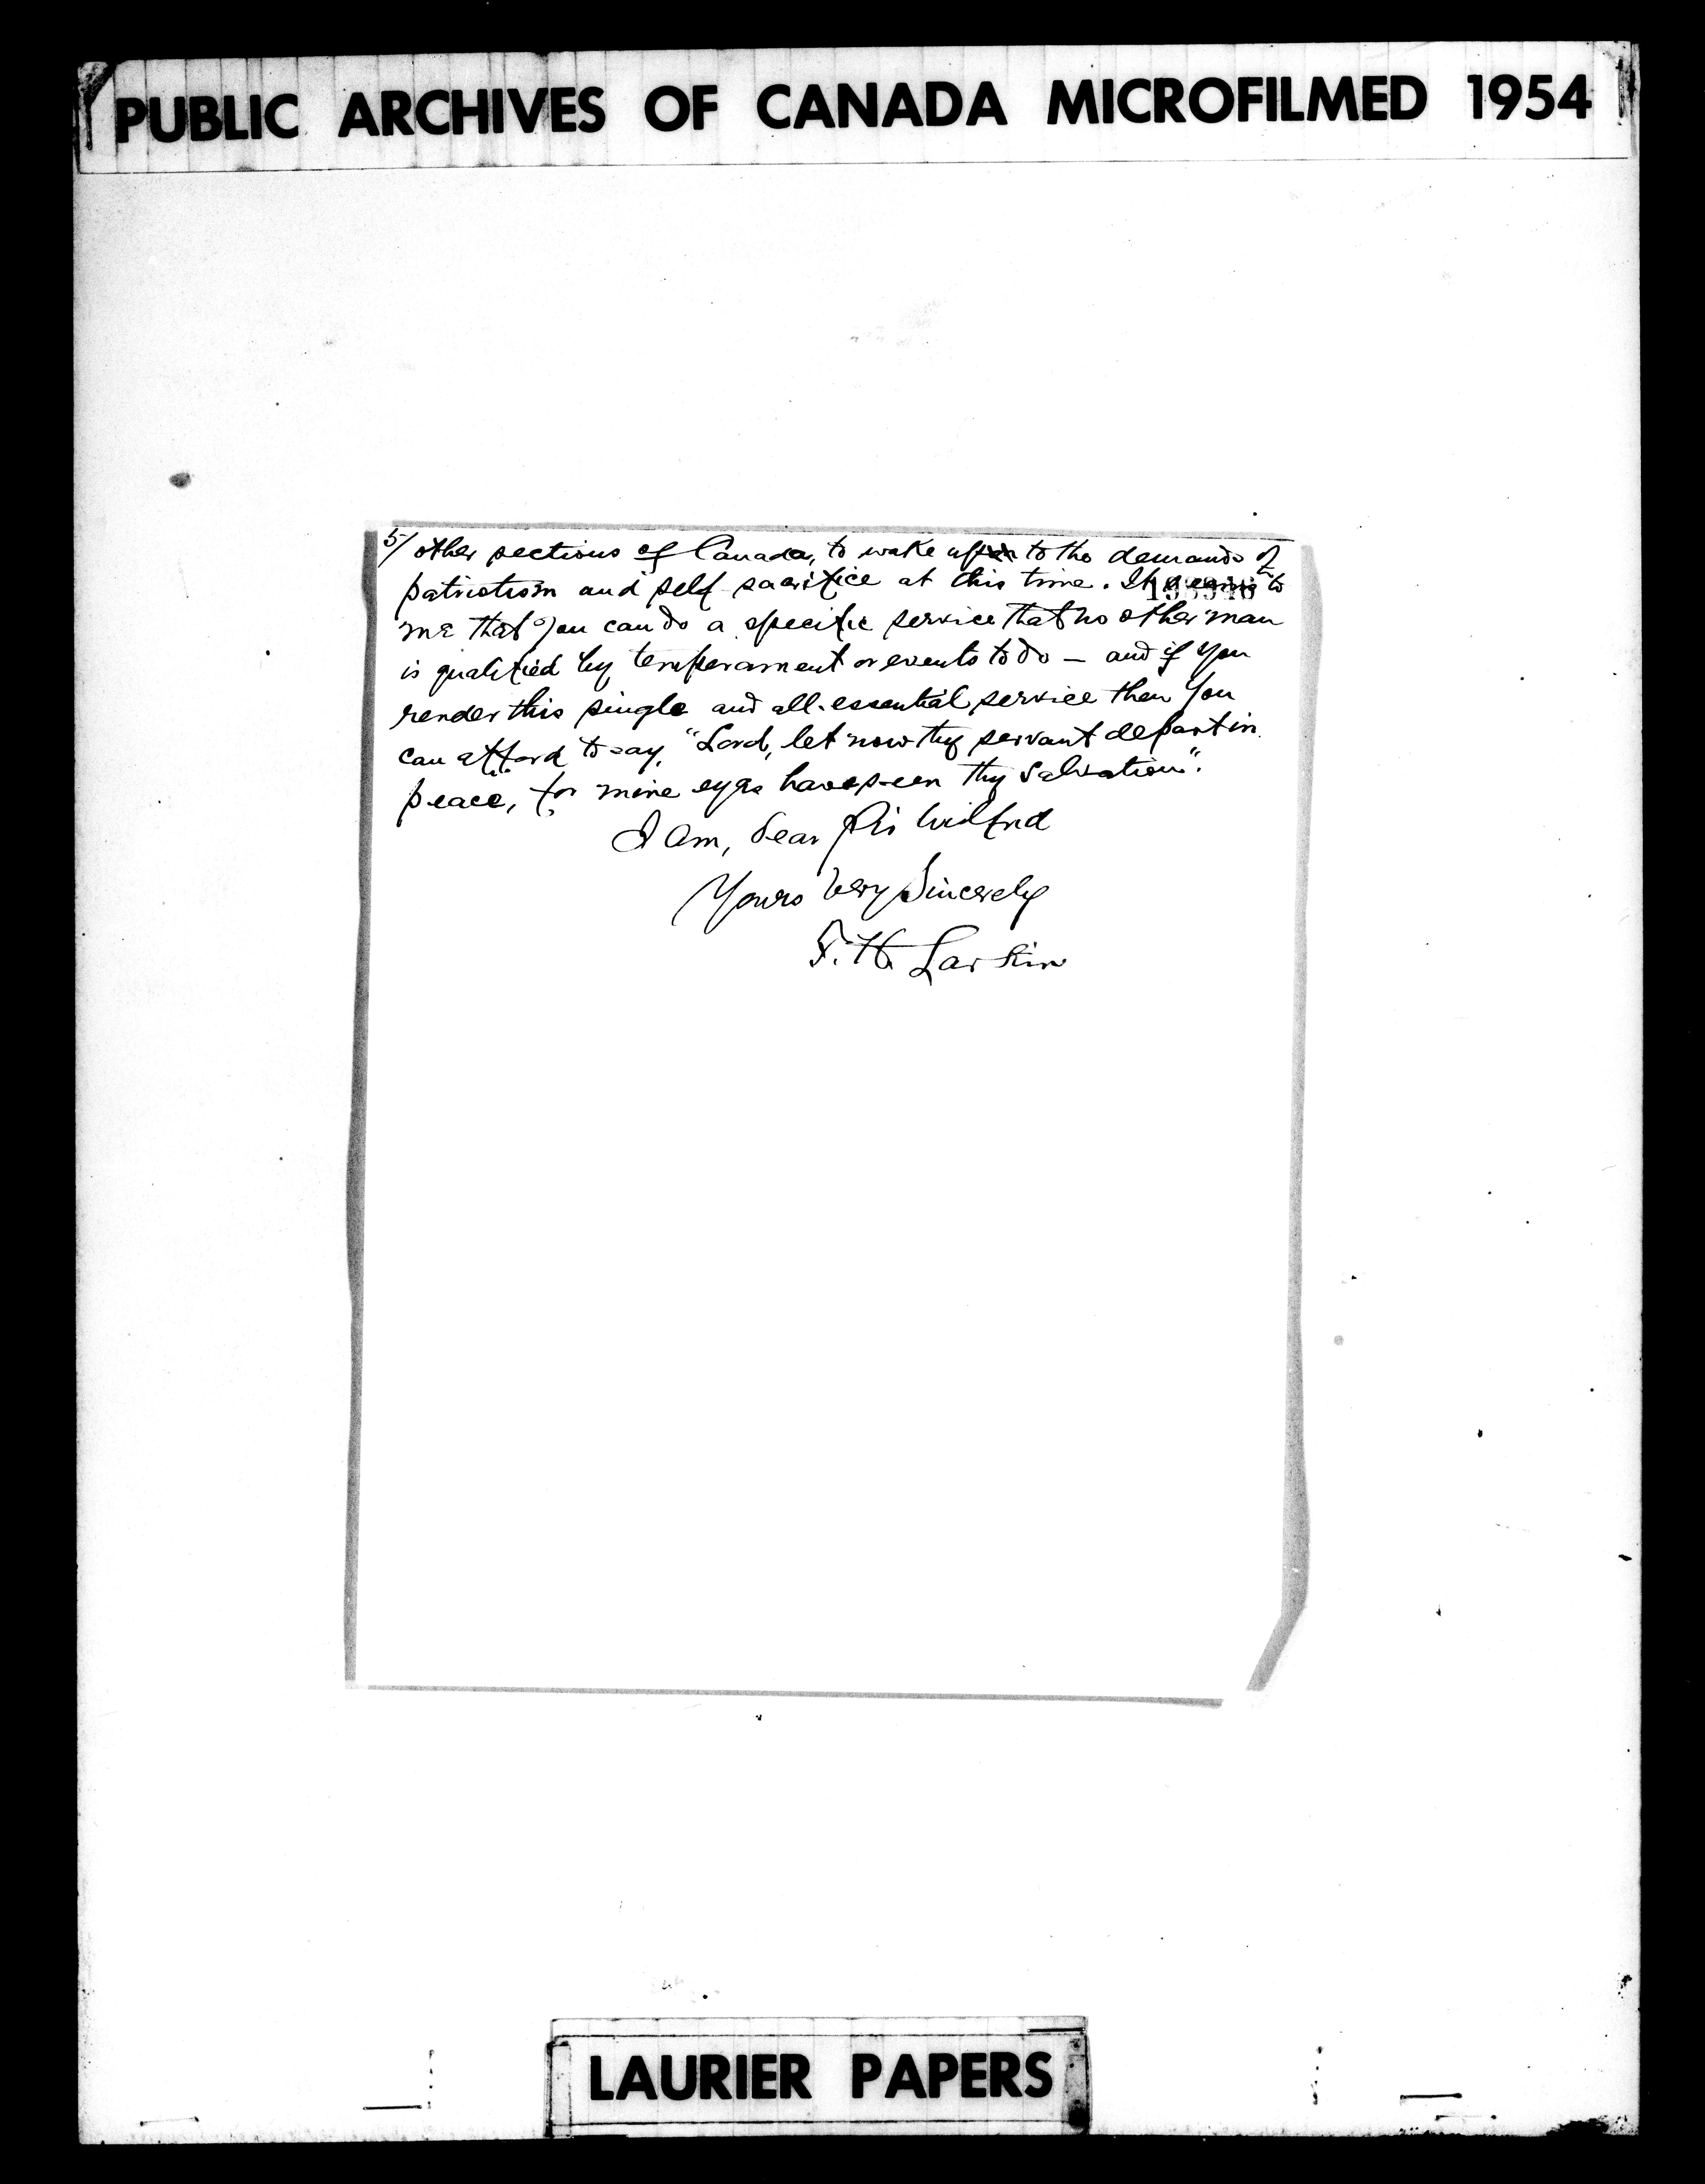 PUBLIC ARCHIVES OF CANADA MICROFILMED 1954
5/ other sections of Canada, to wake up to the demands of
patriotism and self sacrifice at this time. It seems to
me that you can do a specific service that no other man
is qualified by temperament or events to do — and if you
render this single and all-essential service then you
can afford to say, "Lord, let now thy servant depart in
peace, for mine eyes have seen thy salvation".
I am, dear Sir Wilfrid
Yours very sincerely
F. H. Larkin
LAURIER PAPERS